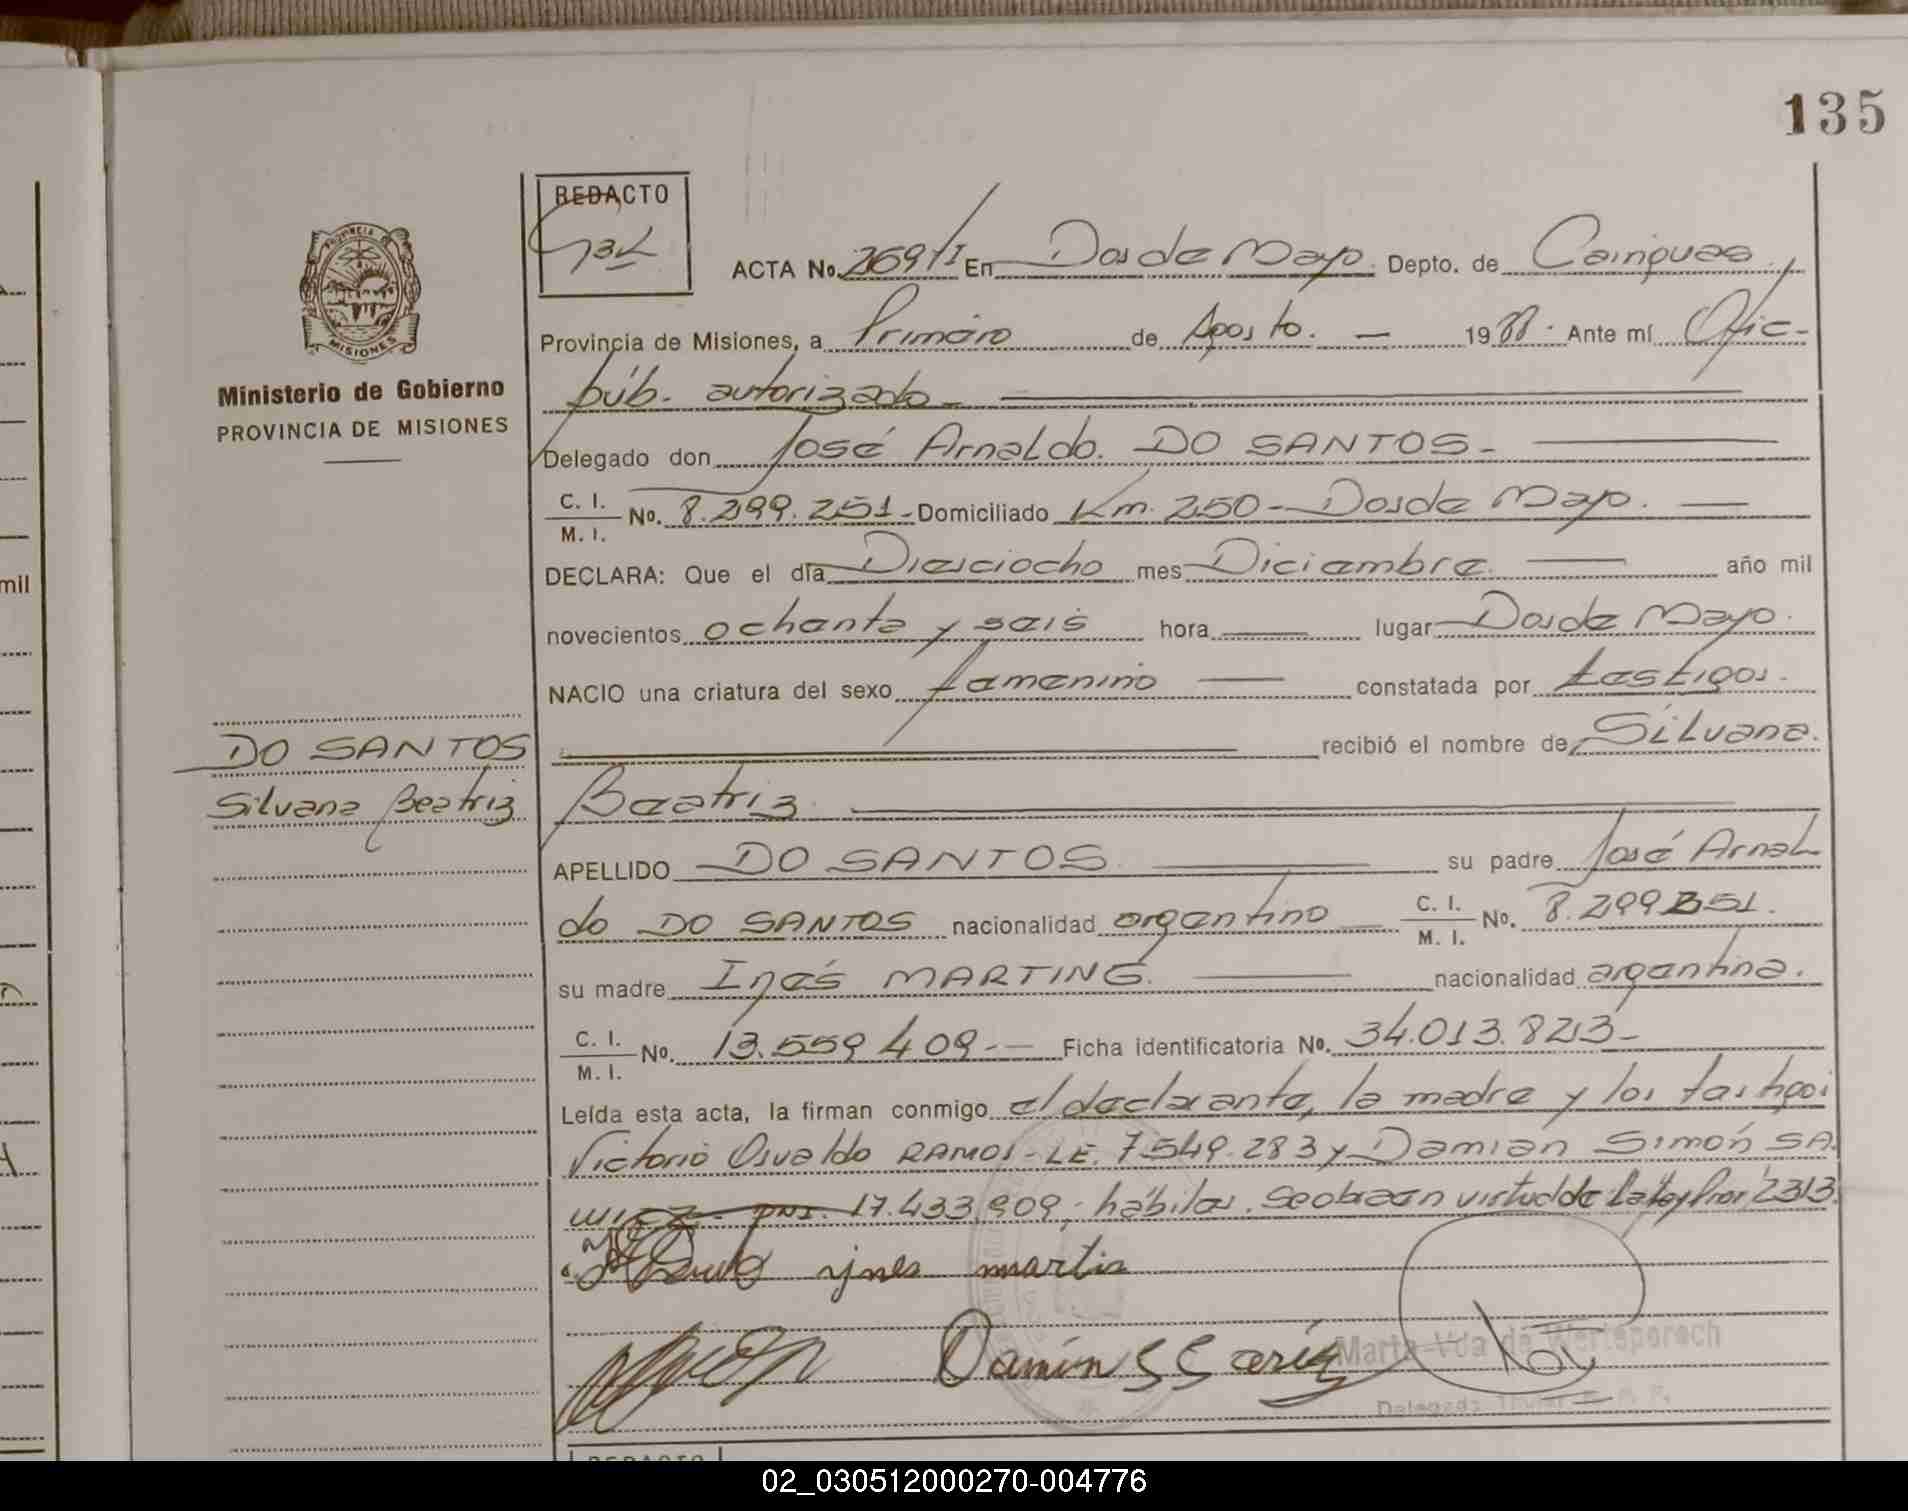 135
REDACTO
ACTA No. 269/I En Dos de Mayo. Depto. de Cainguas
Provincia de Misiones, a Primero de Agosto. — 1988. Ante mí Ofic-
púb. autorizado
Delegado don José Arnaldo. DO SANTOS.
C. I.
M. I. No. 8.299.251 - Domiciliado Km. 250 - Dos de Mayo.
DECLARA: Que el día Diesciocho mes Diciembre. año mil
novecientos ochenta y seis hora — lugar Dos de Mayo.
NACIO una criatura del sexo femenino constatada por testigos.
recibió el nombre de Silvana.
Beatriz.
APELLIDO DO SANTOS su padre José Arnal
do DO SANTOS nacionalidad argentino C. I.
M. I. No. 8.299.251.
su madre Inés MARTING. nacionalidad argentina.
C. I.
M. I. No. 13.559.409 - Ficha identificatoria No. 34.013.823-
Leída esta acta, la firman conmigo el declarante, la madre y los testigos
Victorio Osvaldo RAMOS - LE. 7.549.283 y Damian Simón SA.
17.433.909; hábiles. 2313.
ynes martin
Marta Vda de
Delegada
PROVINCIA DE
MISIONES
Ministerio de Gobierno
PROVINCIA DE MISIONES
DO SANTOS
Silvana Beatriz
mil
REDACTO
02_030512000270-004776